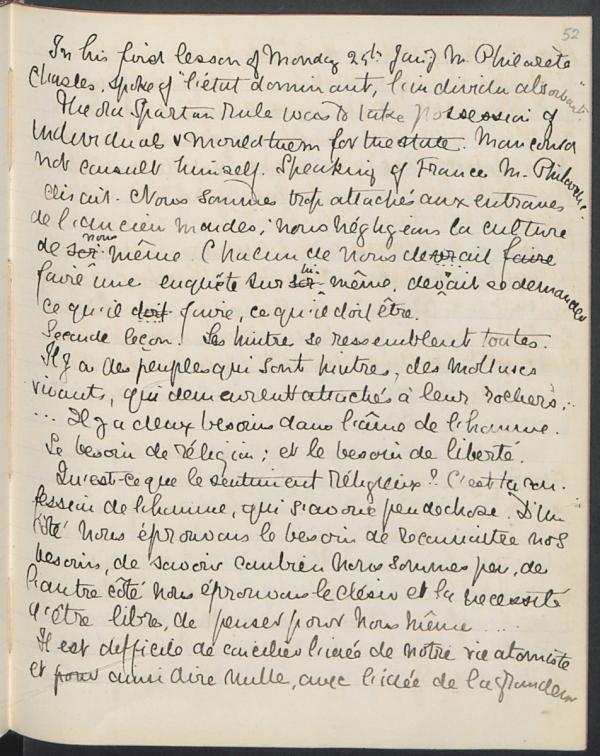 52
In his first lesson of Monday 25th Jany M. Philarète
Chasles, spoke of "l'état dominant, l'individu absorbant."
The old Spartan Rule was to take possession of
Individuals & mould them for the state. Man could
not consult himself. Speaking of France M. Philarète
disait. Nous sommes trop attachés aux entraves
de l'ancien mondes; nous négligeons la culture
de soi nous même. Chacun de nous devrait faire
faire une enquête sur soi lui même, devait se demander
ce qu'il doit faire, ce qu'il doit être.
Seconde leçon. Les huitres se ressemblent toutes.
Il y a des peuples qui sont huitres, des molluscs
vivants, qui demeurent attachés à leur rochers...
... Il y a deux besoins dans l'âme de l'homme.
Le besoin de réligion; et le besoin de liberté.
Qu'est-ce que le sentiment réligieux? C'est la con-
fession de l'homme, qui s'avoue peu de chose. D'un
côté nous éprouvons le besoin de reconnaitre nos
besoins, de savoir combien nous sommes peu, de
l'autre côté nous éprouvons le désir et la necessité
d'être libre, de penser pour nous même ....
Il est difficile de concilier l'idée de notre vie atomiste
et pour ainsi dire nulle, avec l'idée de la grandeur